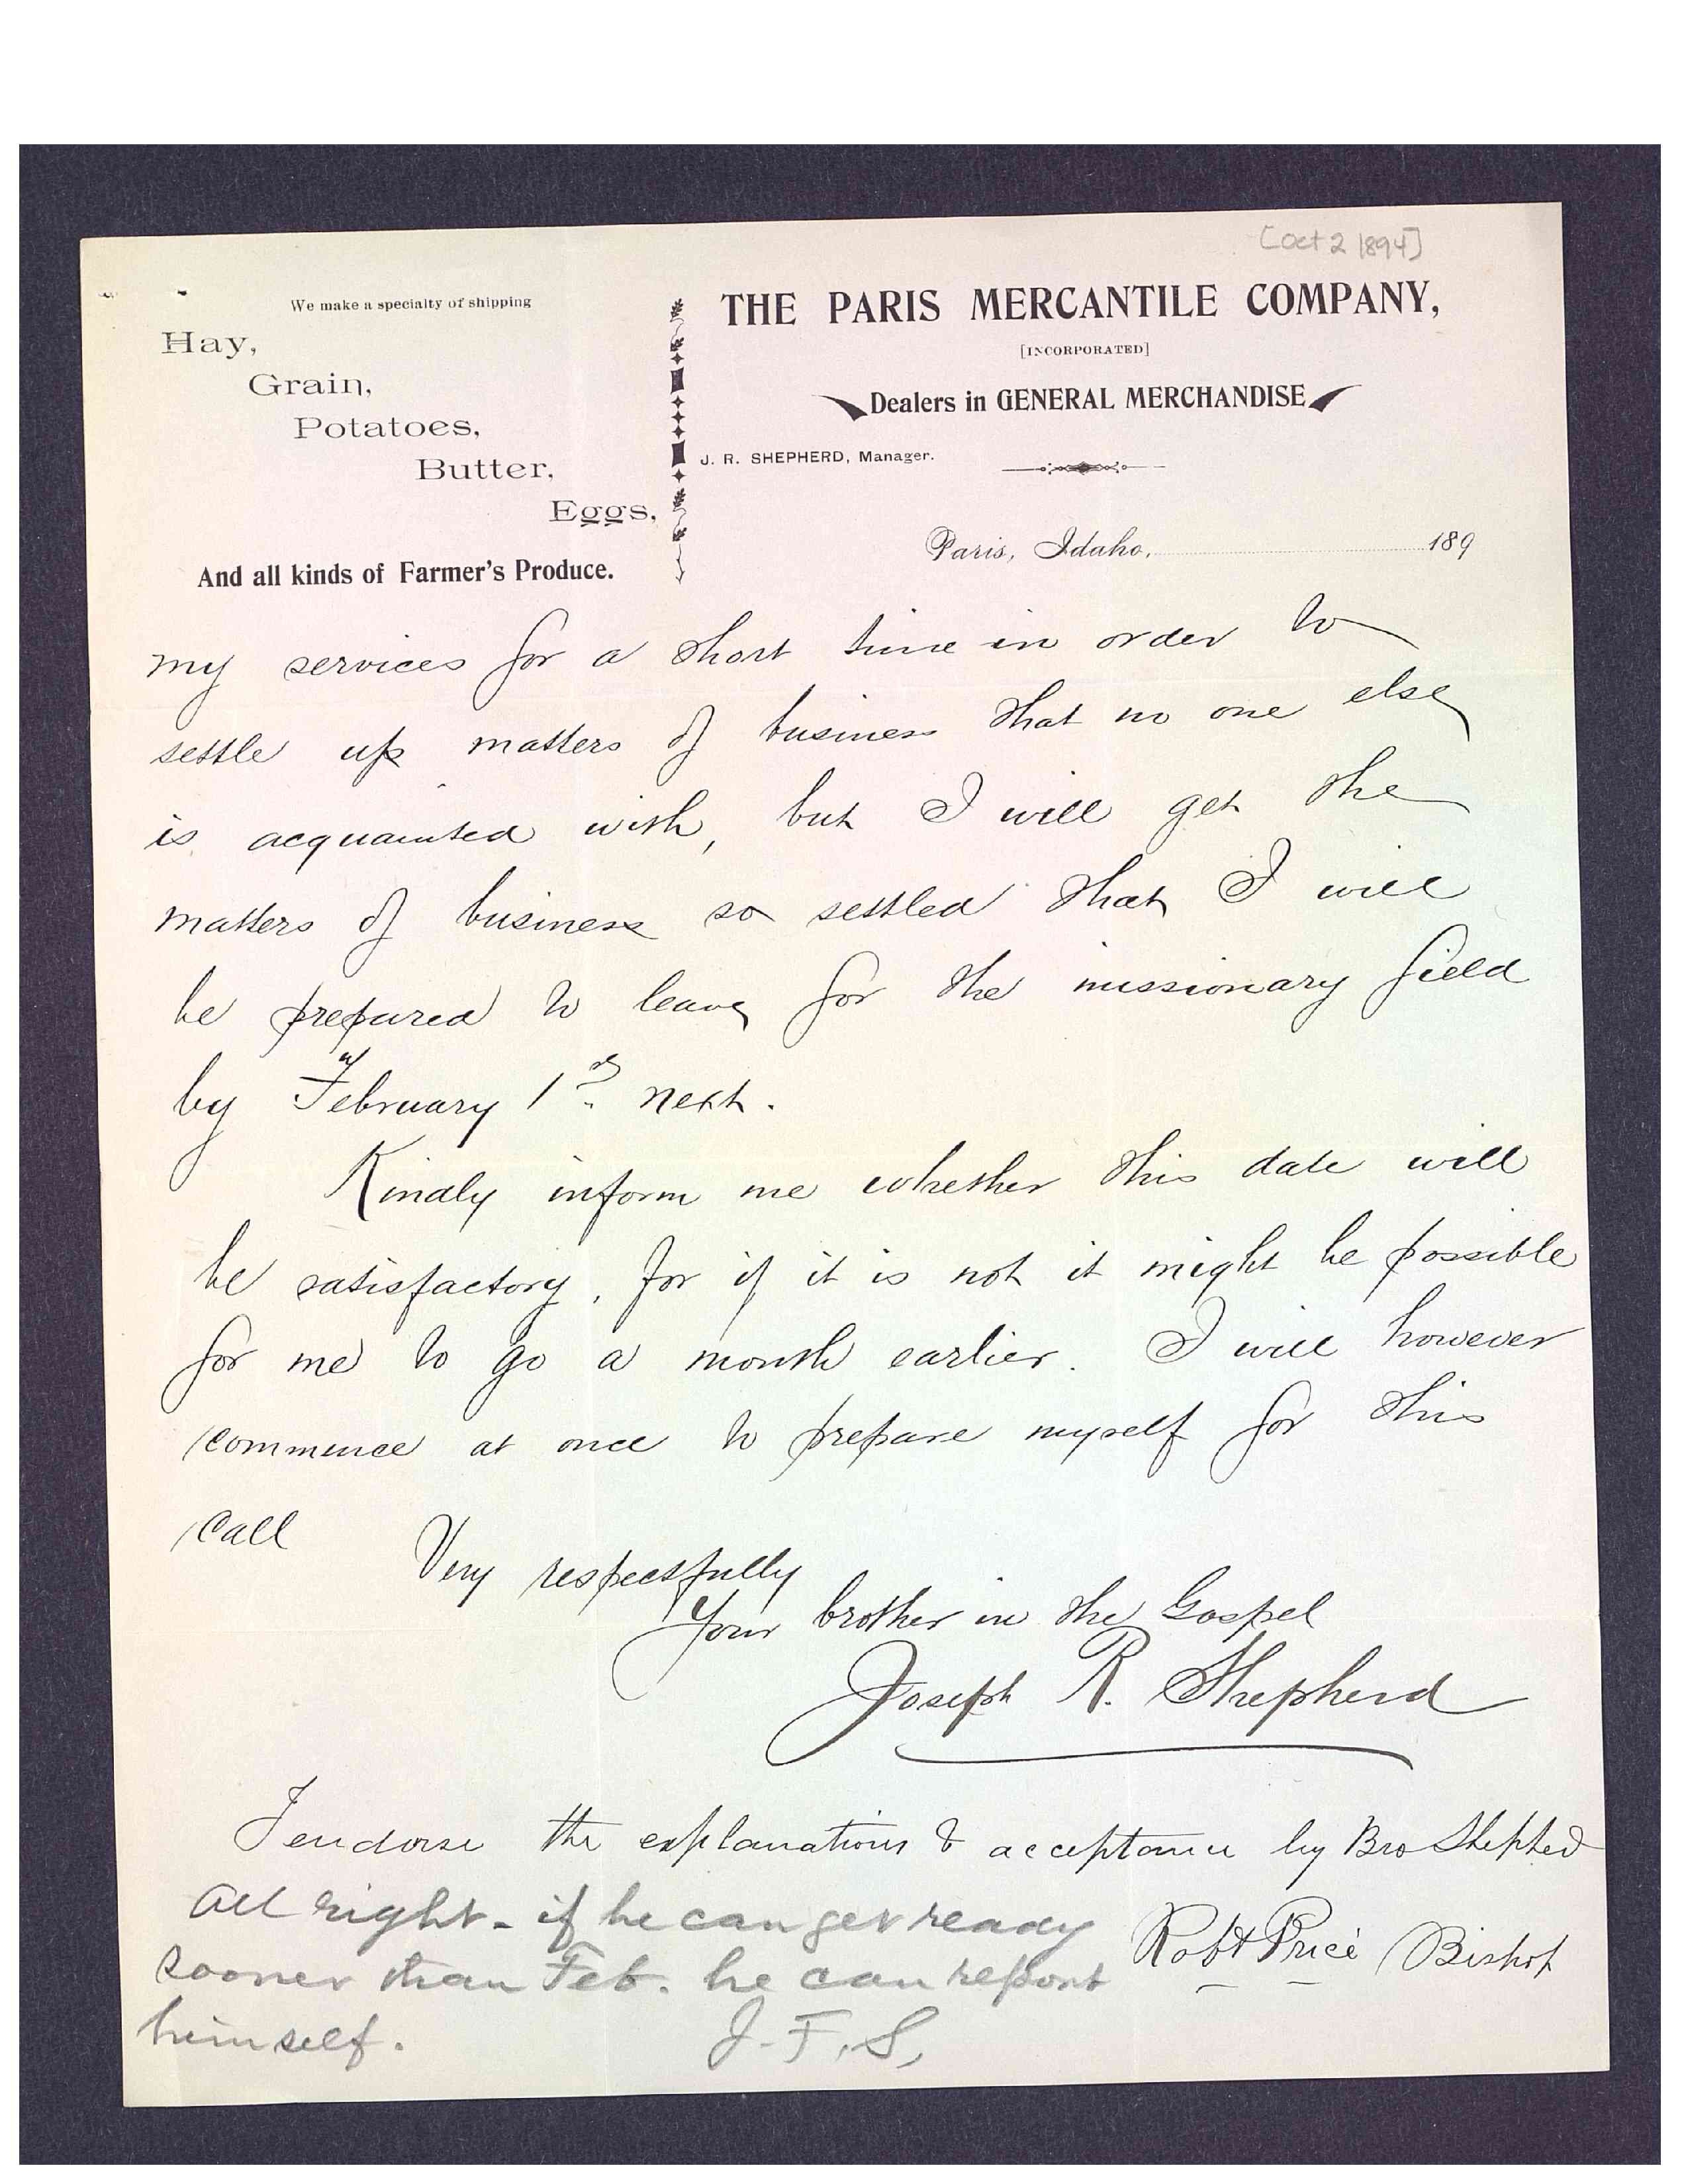 [Oct 2 1894]
We make a specialty of shipping
Hay,
Grain,
Potatoes,
Butter,
Eggs,
And all kinds of Farmer's Produce.
THE PARIS MERCANTILE COMPANY,
[INCORPORATED]
Dealers in GENERAL MERCHANDISE
J. R. SHEPHERD, Manager.
Paris, Idaho, 189
my services for a short time in order to
settle up matters of business that no one else
is acquainted with, but I will get the
matters of business so settled that I will
be prepared to leave for the missionary field
by February 1st next.
Kindly inform me whether this date will
be satisfactory, for if it is not it might be possible
for me to go a month earlier. I will however
commence at once to prepare myself for this
call
Very respectfully
Your brother in the Gospel
Joseph R. Shepherd
I endorse the explanations & acceptance by Bro Shepherd
Robt Price Bishop
All right - if he can get ready
sooner than Feb. he can report
himself.
J. F. S,